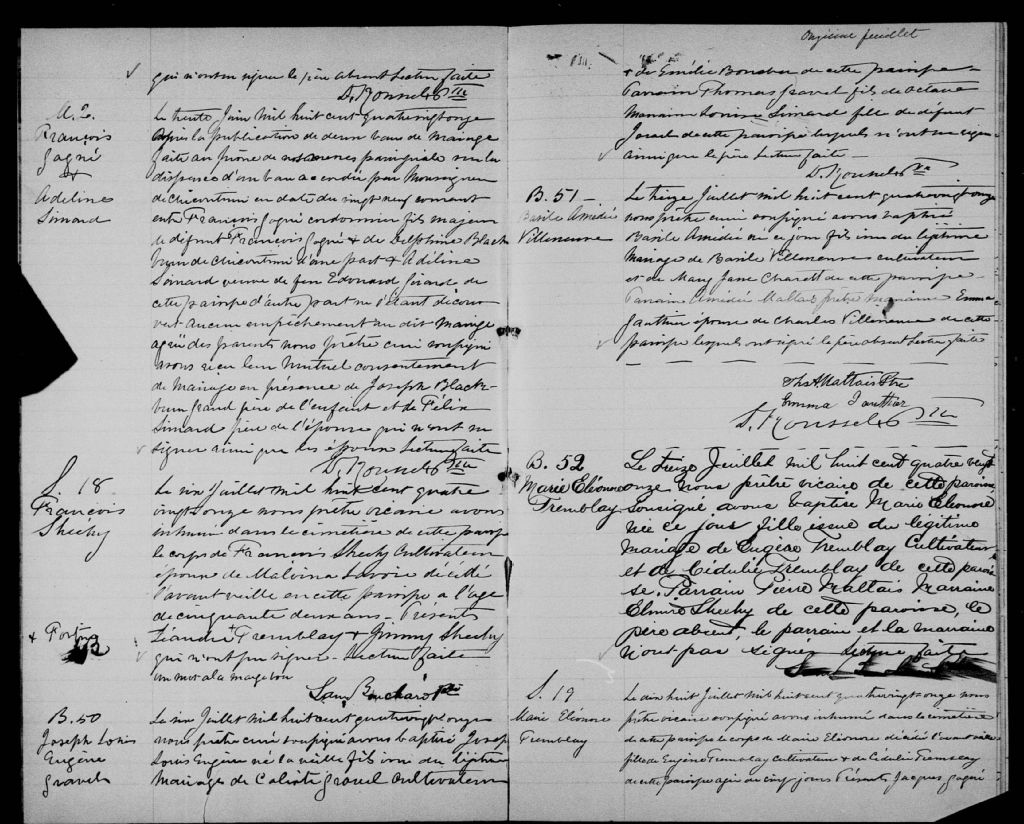 qui n'ont su signer le père absent Lecture faite
D. Roussel Ptre
M. 2.
François
Gagné
&
Adeline
Simard
Le trente Juin mil huit cent quatrevingt onze
Après la publication de deux bans de mariage
faite au prône de nos messes paroissiale vu la
dispense d'un ban accordée par Monseigneur
de Chicoutimi en date du vingt neuf courant
entre François Gagné cordonnier fils majeur
de défunt François Gagné & de Delphine Black
burn de Chicoutimi d'une part & Adeline
Simard veuve de feu Edouard Girard de
cette paroisse d'autre part ne s'étant décou
vert aucun empêchement au dit mariage
agrée des parents nous prêtre curé soussigné
avons reçu leur mutuel consentement
de mariage en présence de Joseph Black-
burn grand père de l'enfant et de Félix
Simard père de l'épouse qui n'ont su
signer ainsi que les époux Lecture faite
D. Roussel Ptre
S. 18
François
Sheehy
Le six Juillet mil huit cent quatre
vingt onze nous prêtre vicaire avons
inhumé dans le cimetière de cette paroisse
le corps de François Sheehy Cultivateur
époux de Malvina Savoie décédé
l'avant veille en cette paroisse a l'age
de cinquante deux ans. Présents
+ Fortin
Léandre + Tremblay & Jimmy Sheehy
qui n'ont pu signer. Lecture faite
un mot a la marge bon
B. 50
Joseph Louis
Eugène
Gravel
Le six Juillet mil huit cent quatrevingt onze
nous prêtre curé soussigné avons baptisé Joseph
Louis Eugène né la veille fils issu du légitime
Mariage de Calixte Gravel Cultivateur
Onzième feuillet
& de Emélie Boucher de cette paroisse
Parrain Thomas Gravel fils de Octave
Marraine Louise Simard fille de défunt
Joseph de cette paroisse lesquels n'ont su signer
ainsi que le père Lecture faite
D. Roussel Ptre
B. 51
Basile Amédée
Villeneuve
Le treize Juillet mil huit cent quatrevingt onze
nous prêtre curé soussigné avons baptisé
Basile Amédée né ce jour fils issu du légitime
Mariage de Basile Villeneuve cultivateur
et de Mary Jane Charett de cette paroisse
Parrain Amédée Maltais prêtre marraine Emma
Gauthier épouse de Charles Villeneuve de cette
paroisse lesquels ont signé le père absent Lecture faite
Ths A Maltais Ptre
Emma Gauthier
D. Roussel Ptre
B. 52
Marie Eléonore
Tremblay
Le treize Juillet mil huit cent quatre vingt
onze Nous prêtre vicaire de cette paroisse
Sousigné avons baptisé Marie Eléonore
née ce jour fille issue du légitime
Mariage de Eugène Tremblay Cultivateur
et de Cédulie Tremblay de cette parois
se, Parrain Pierre Maltais Marraine
Elmire Sheehy de cette paroisse, le
père absent, le parrain et la marraine
N'ont pas signer Lecture faite
S. 19
Marie Eléonore
Tremblay
Le dix huit Juillet mil huit cent quatrevingt onze nous
prêtre vicaire soussigné avons inhumé dans le cimetière
de cette paroisse le corps de Marie Eléonore décédée l'avant veille
fille de Eugène Tremblay Cultivateur & de Cédulie Tremblay
de cette paroisse agée de cinq jours Présents Jacques Gagné